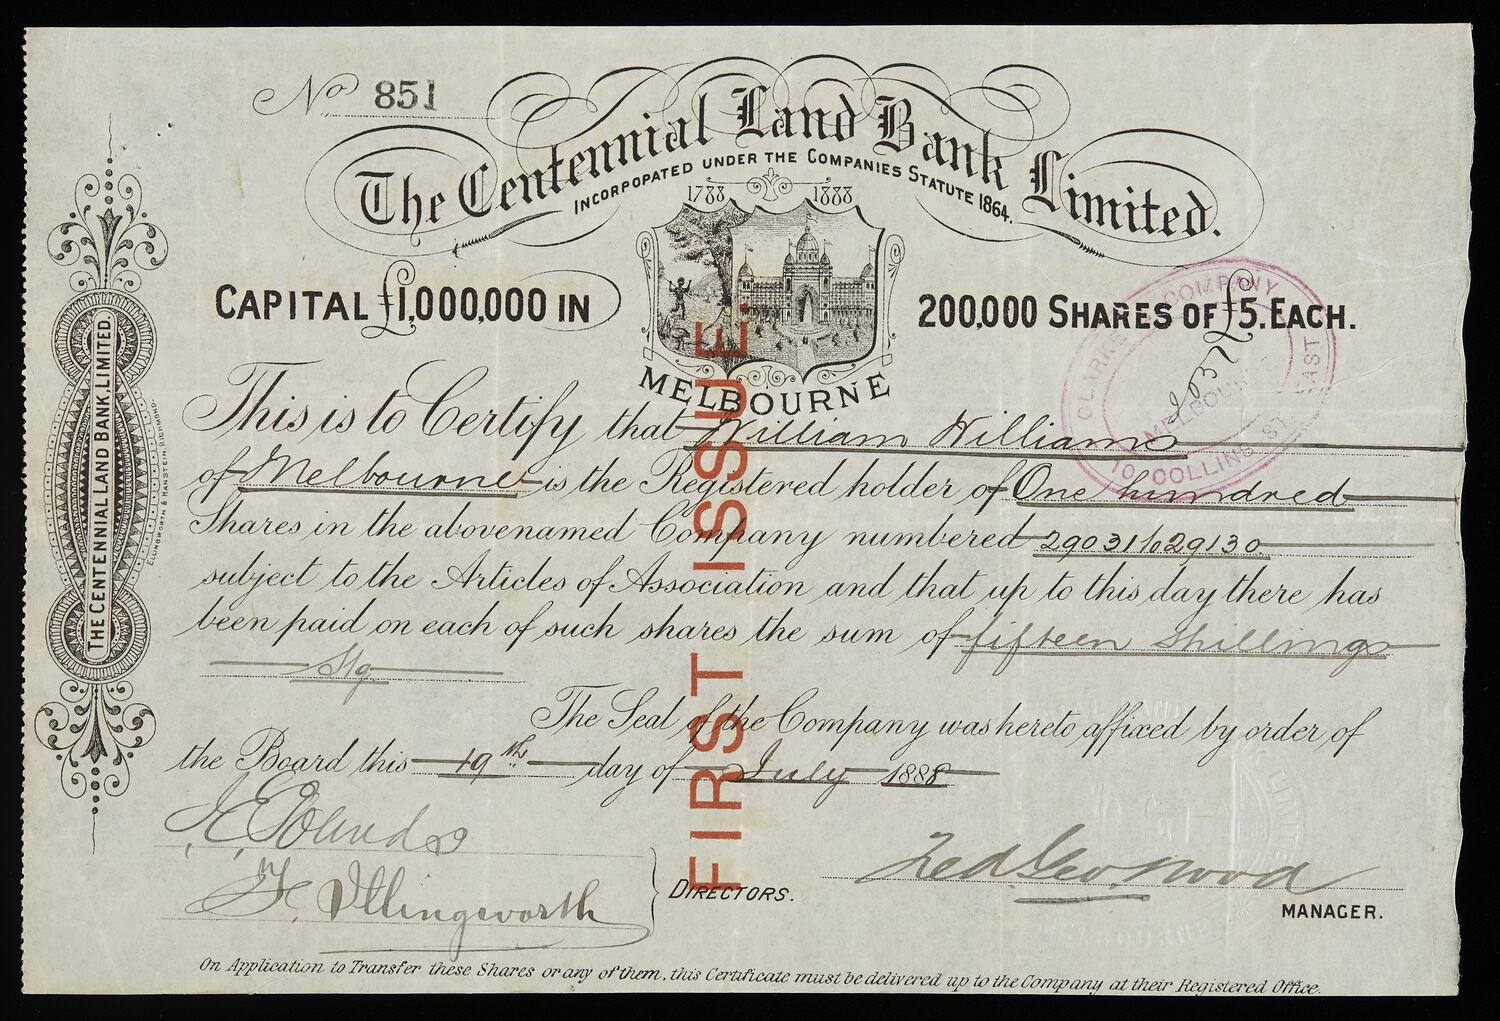 No 851
The Centennial Land Bank Limited.
INCORPOPATED UNDER THE COMPANIES STATUTE 1864.
1788 1888
CAPITAL £1,000,000 IN 200,000 SHARES OF £5. EACH.
MELBOURNE
CLARKE & COMPANY
MELBOURNE
10 COLLINS ST EAST
This is to Certify that William Williams
of Melbourne is the Registered holder of One hundred
Shares in the abovenamed Company numbered 29031 to 29130
subject to the Articles of Association and that up to this day there has
been paid on each of such shares the sum of fifteen shillings
Stg.
The Seal of the Company was hereto affixed by order of
the Board this 19th day of July 1888
F. Illingworth
DIRECTORS.
Fred Geo. Wood
MANAGER.
On Application to Transfer these Shares or any of them, this Certificate must be delivered up to the Company at their Registered Office.
FIRST ISSUE.
THE CENTENNIAL LAND BANK, LIMITED.
ELLINGWORTH & HANSTEIN, RICHMOND.